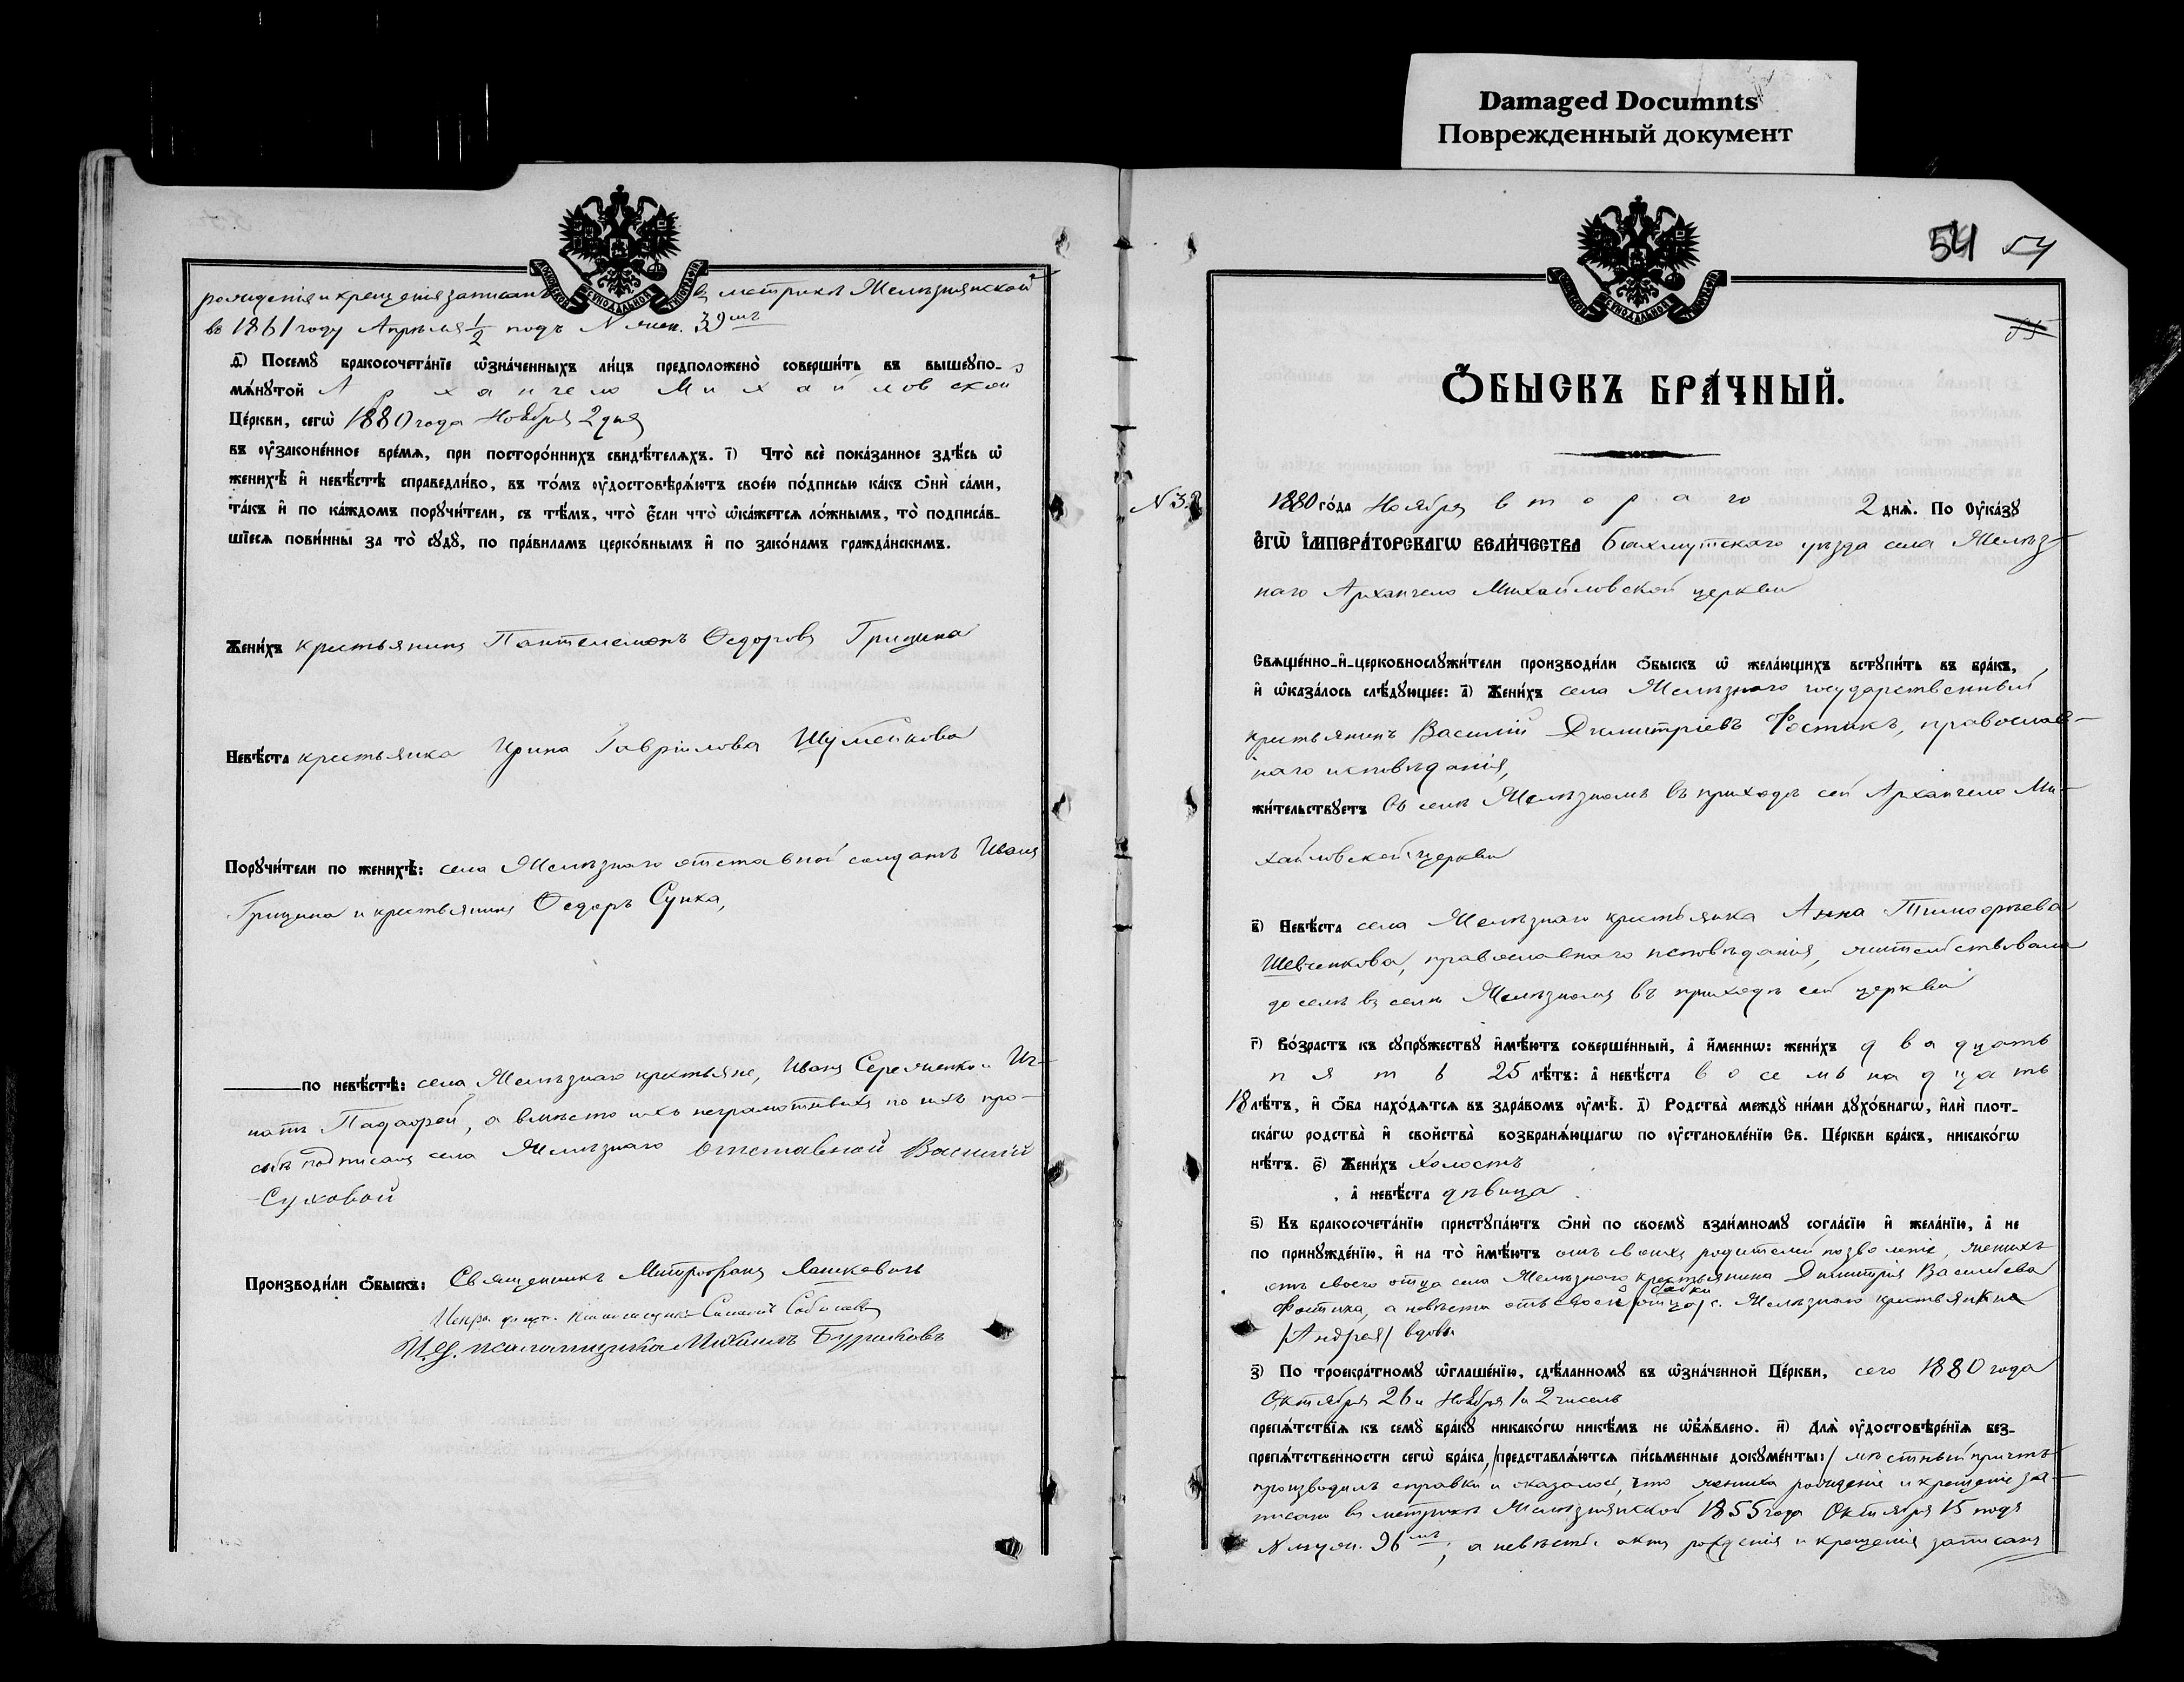 Damaged Documnts
Поврежденный документ
рожденія и крещенія записанъ въ метрикѣ Желѣзнянской
въ 1861 году Апрѣля 1/2 подъ N жен. 39мъ
д҃) Посемꙋ̀ бракосочета́нїе ѡ҆зна́ченныхъ ли́цъ предположено̀ соверши́ть въ вышеꙋпо-
мѧ́нꙋтой Архангело Михайловской
Це́ркви, сегѡ̀ 1880 года Ноября 2 дня
въ ᲂу҆зако́ненное вре́мѧ, при посторо́ннихъ свидѣ́телѧхъ. і҃) Что̀ всѐ пока́занное здѣ́сь ѡ҆
женихѣ̀ и҆ невѣ́стѣ справедли́во, въ то́мъ ᲂу҆достовѣрѧ́ютъ свое́ю по́дписью ка́къ ѻ҆нѝ са́ми,
та́къ и҆ по ка́ждомъ порꙋчи́тели, съ тѣ́мъ, что̀ є҆́сли что̀ ѡ҆ка́жетсѧ ло́жнымъ, то̀ подписа́в-
шїесѧ пови́нны за то̀ сꙋдꙋ̀, по пра́виламъ церко́внымъ и҆ по зако́намъ гражда́нскимъ.
Жени́хъ крестьянинъ Пантелемонъ Ѳедоровъ Грицина
Невѣ́ста крестьянка Ирина Гавріилова Шумейкова
Порꙋчи́тели по женихѣ̀: села Желѣзнаго отставной солдатъ Иванъ
Грицина и крестьянинъ Ѳедоръ Супка,
по невѣ́стѣ: села Желѣзнаго крестьяне, Иванъ Середненко и Иг-
натъ Падафей, а вмѣсто ихъ неграмотныхъ по ихъ про-
сьбѣ подписалъ села Желѣзнаго отставной Василій
Суховой
Производи́ли ѻ҆́быскъ: Священникъ Митрофанъ Яшкевичъ
И.д. псаломщика Михаилъ Бурлковъ
54 54
55
Ѻ҆́БЫСКЪ БРА́ЧНЫЙ.
N 32
1880 го́да Ноября втораго 2 днѧ̀. По ᲂу҆ка́зꙋ
Е҆ГѠ̀ І҆МПЕРА́ТОРСКАГѠ ВЕЛИ́ЧЕСТВА Бахмутскаго уѣзда села Желѣз-
наго Архангело Михайловской церкви
Свѧще́нно-и҆-церковнослꙋжи́тели производи́ли ѻ҆́быскъ ѡ҆ жела́ющихъ встꙋпи́ть въ бра́къ,
и҆ ѡ҆каза́лось слѣ́дꙋющее: а҃) Жени́хъ села Желѣзнаго государственный
крестьянинъ Василій Димитріевъ Фостикъ, православ-
наго исповѣданія,
жи́тельствꙋетъ въ селѣ Желѣзномъ въ приходѣ сей Архангело Ми-
хайловской церкви
в҃) Невѣ́ста села Желѣзнаго крестьянка Анна Тимофѣева
Шевченкова, православнаго исповѣданія, жительствовала
доселѣ въ селѣ Желѣзномъ въ приходѣ сей церкви
г҃) Во́зрастъ къ сꙋпрꙋ́жествꙋ и҆мѣ́ютъ соверше́нный, а҆ и҆́менно: жени́хъ двадцать
пять 25 лѣ́тъ: а҆ невѣ́ста восемьнадцать
18 лѣ́тъ, и҆ ѻ҆́ба нахо́дѧтсѧ въ здра́вомъ ᲂу҆мѣ̀. д҃) Родства̀ междꙋ̀ ни́ми дꙋхо́внагѡ, и҆лѝ плот-
ска́гѡ родства̀ и҆ свойства̀ возбранѧ́ющагѡ по ᲂу҆становле́нїю Св. Це́ркви бра́къ, никако́гѡ
нѣ́тъ. є҃) Жени́хъ холостъ
, а҆ невѣ́ста дѣвица.
ѕ҃) Къ бракосочета́нїю пристꙋпа́ютъ ѻ҆нѝ по своемꙋ̀ взаи́мномꙋ согла́сїю и҆ жела́нїю, а҆ не
по принꙋжде́нїю, и҆ на то̀ и҆мѣ́ютъ отъ своихъ родителей позволеніе, женихъ
отъ своего отца села Желѣзнаго крестьянина Димитрія Васильева
Фостика, а невѣста отъ своей бабки /отца/ с. Желѣзнаго крестьянкина
/Андрея/ вдовы
з҃) По троекра́тномꙋ ѡ҆глаше́нїю, сдѣ́ланномꙋ въ ѡ҆зна́ченной Це́ркви, сего 1880 года
Октября 26 и Ноября 1 и 2 числъ
препѧ́тствїѧ къ семꙋ̀ бра́кꙋ никако́гѡ никѣ́мъ не ѡ҆б̾ѧ́влено. и҃) Длѧ̀ ᲂу҆достовѣре́нїѧ без-
препѧ́тственности сегѡ̀ бра́ка, /представлѧ́ютсѧ пи́сьменные докꙋме́нты:/ мѣстный причтъ
производилъ справки и оказалось, что жениха рожденіе и крещеніе за-
писано въ метрикѣ Желѣзнянской 1855 года Октября 15 подъ
N муж. 96мъ; а невѣсты актъ рожденія и крещенія записанъ